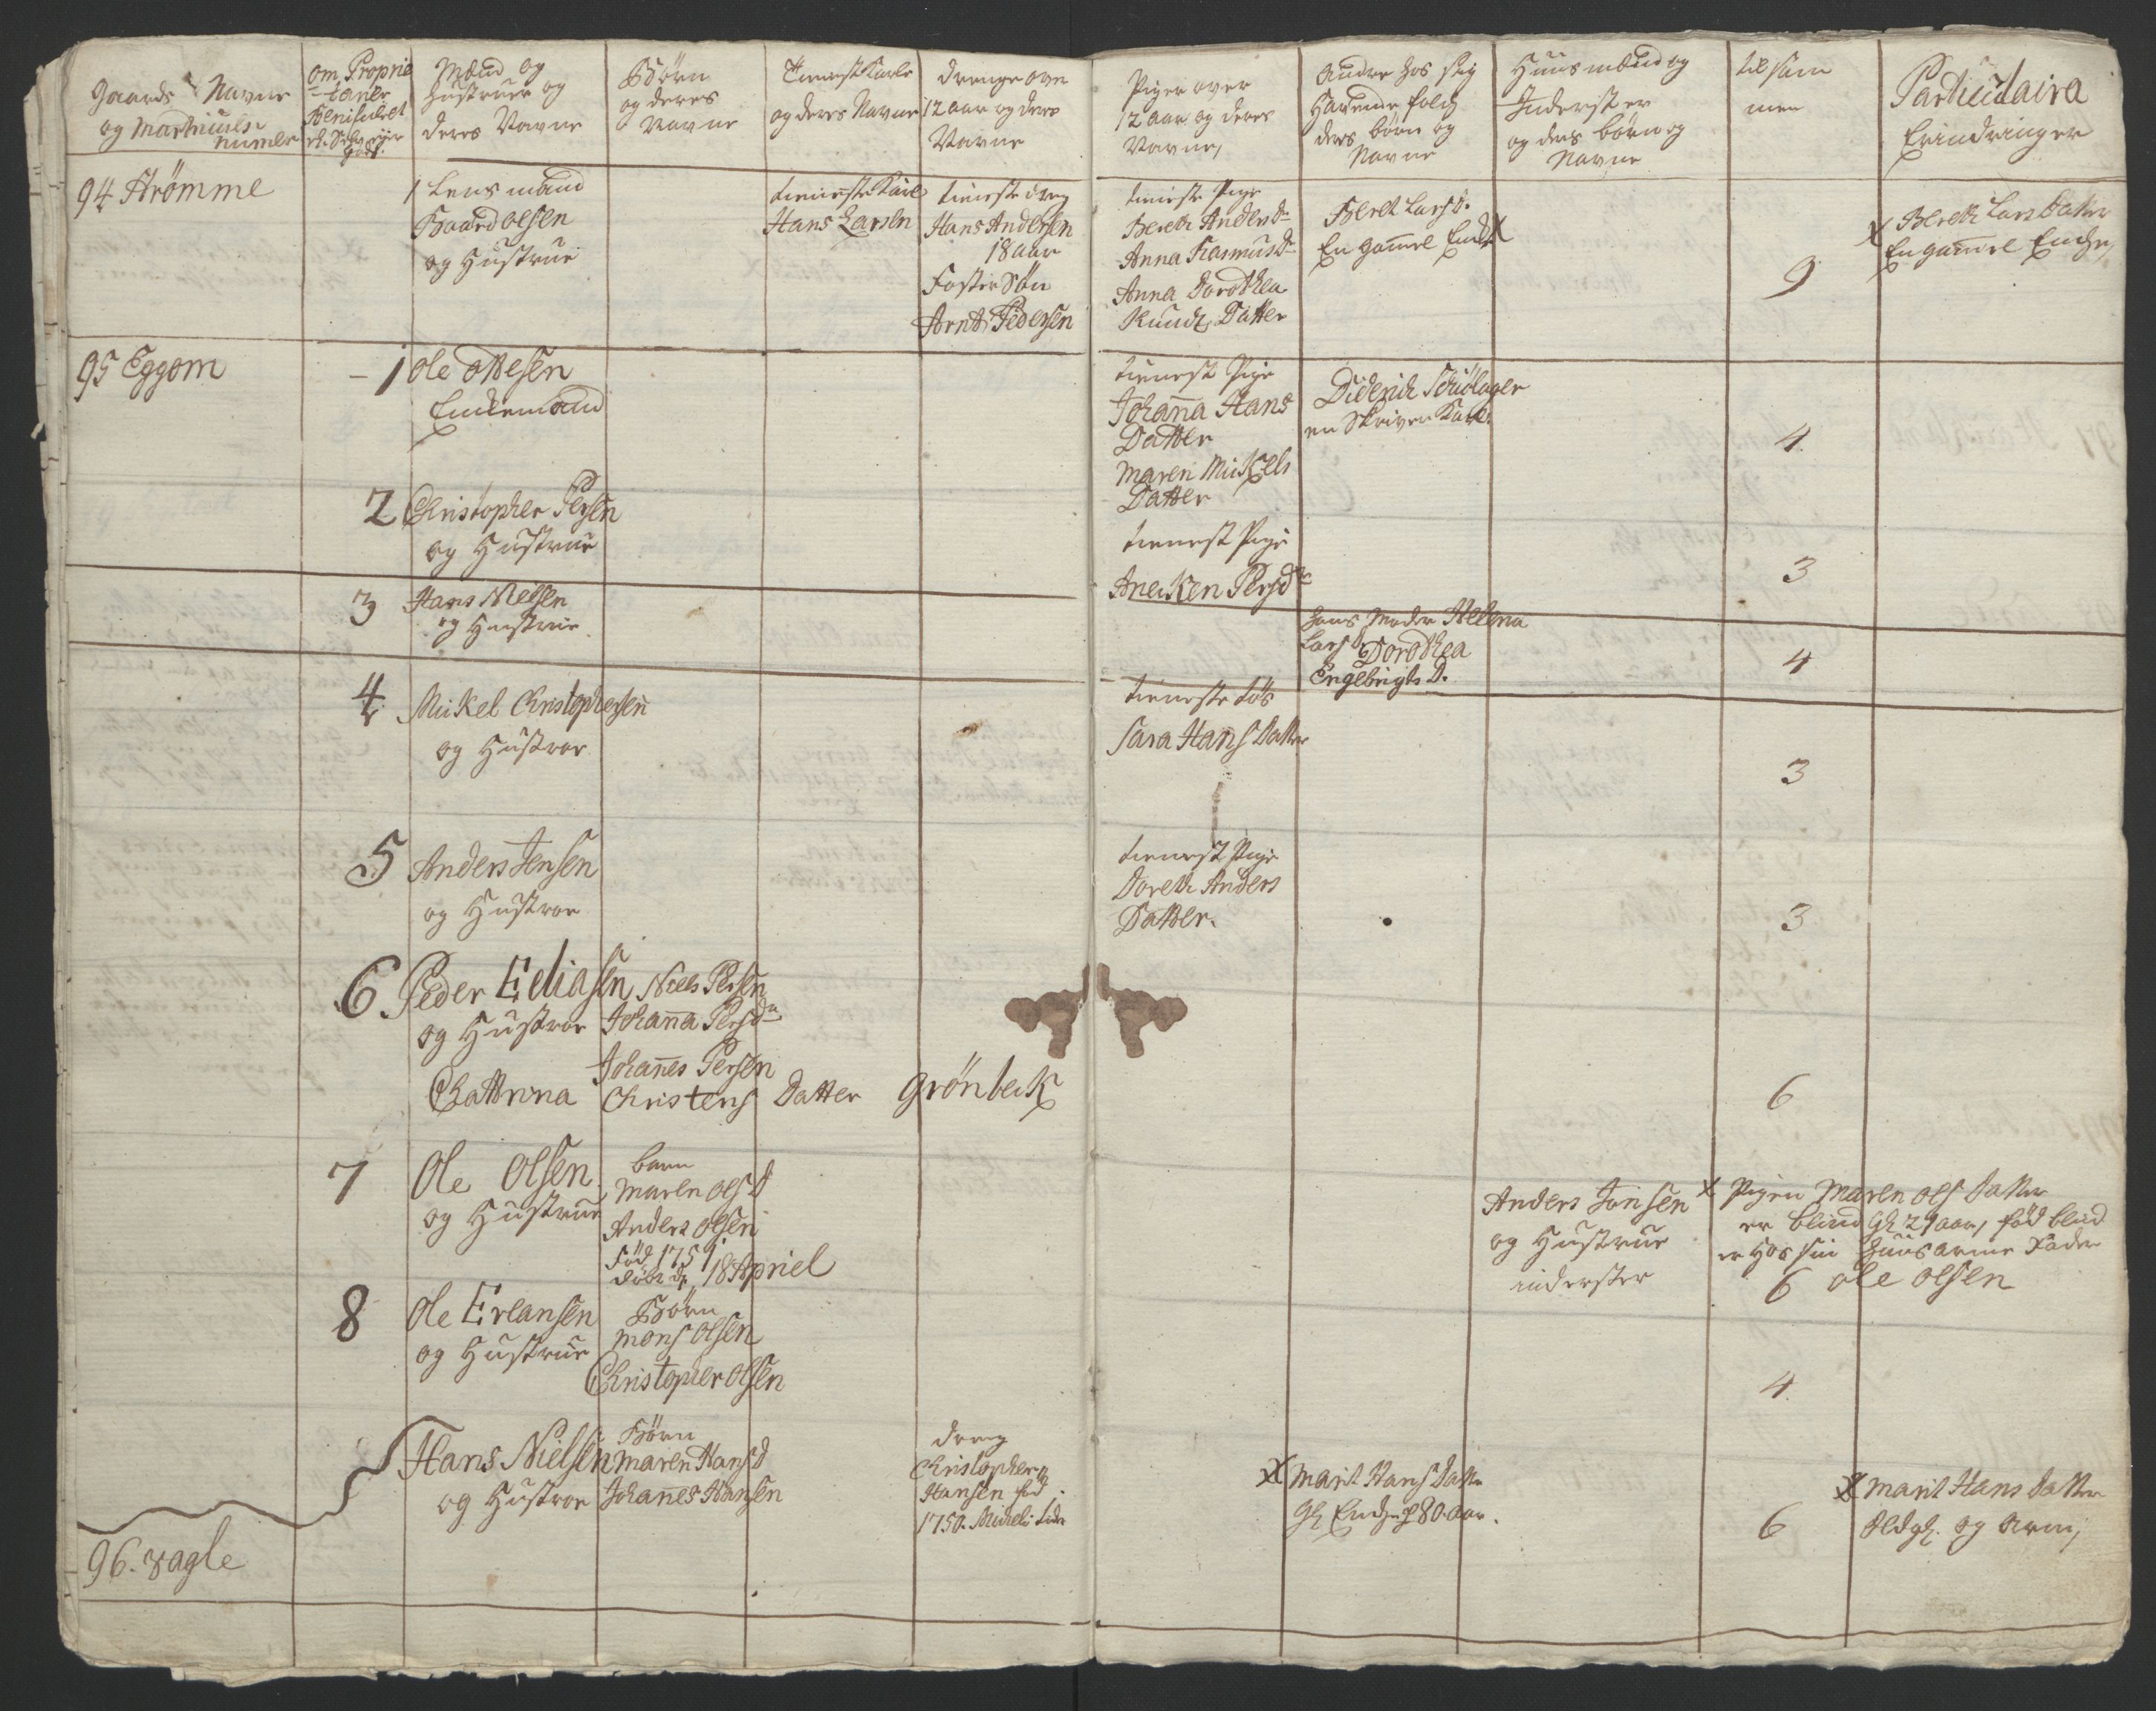 Gaards Navne
og Matriculs
numer
om Proprie
tairer
Benificeret
el. Selv Eyer
gods.
Mænd og
Hustruer og
deres Navne
Børn
og deres
Navne
Tieniste Karle
og deres Navne
drenge over
12 aar og deres
Navne
Piger over
12 aar og deres
Navne,
Andre hos sig
Havende folch
deres børn og
Navne
Huusmænd og
Inderster
og deres børn og
Navne
tilsam
men
Particulaira
Erindringer
94 Strømme
1 Lensmand
Baard olsen
og Hustrue
tienneste Karl
Hans Larsen
tienneste dreng
Hans Andersen
18 aar
Foster Søn
Arnt Pedersen
tienneste Pige
Bereth Andersdr
Anna Rasmusdr
Anna Dorothea
Knudz Datter
Beret Larsd.
En gammel Enke X
9
X Bereth Lars Datter
En gammel Enche,
95 Eggom
- 1 Ole Ottesen
Enkemand
tienest Pige
Johanna Hans
Datter
Maren Mickels
Datter
Diderich Schiølager
en Skriver Karl.
4.
2 Christopher Persen
og Hustrue
tienest Pige
Anecken Persdr
3
3 Hans Nielsen
og Hustrue
hans Moder Helena
Larsdr Dorothea
Engebrigts D.
4
4 Mickel Christophersen
og Hustroe
tieneste tøs
Sara Hans Datter
3
5 Anders Jensen
og Hustroe
tienest Pige
Doreth Anders
Datter.
3
6 Peder Eeliasen
og Hustroe
Niels Persen
Johanna Persdr
Johannes Persen
Chattrina Christens Datter Grönbeck
6
7 Ole Olsen
og Hustrue
barn
Maren olsd
Anders olsen
Född 1759
döbt d. 18 Apriel
Anders Jonsen
og Hustrue
inderster
X Pigen Maren ols Datter
er blind Gl. 21 aar, föd blind
er hos sin Huusarme Fader
6 ole olsen
8 Ole Erlansen
og Hustrue
Börn
Mons Olsen
Christopher Olsen
4.
Hans Nielsen
og Hustroe
Börn
Maren Hansd
Johannes Hansen
dreng
Christopher
Hansen föd
1750. Michels tider
X Marit Hans Datter
Gl. Enche 80 aar.
6
X Marit Hans Datter
Old gl. og Arm,
96. vagle